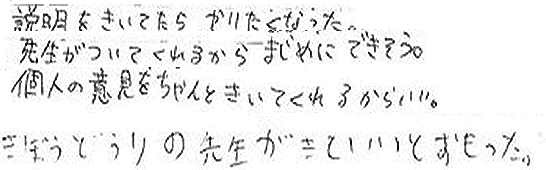 説明をきいてたらやりたくなった。
先生がついてくれるからまじめにできそう。
個人の意見をちゃんときいてくれるからいい。
きぼうどうりの先生がきていいとおもった。